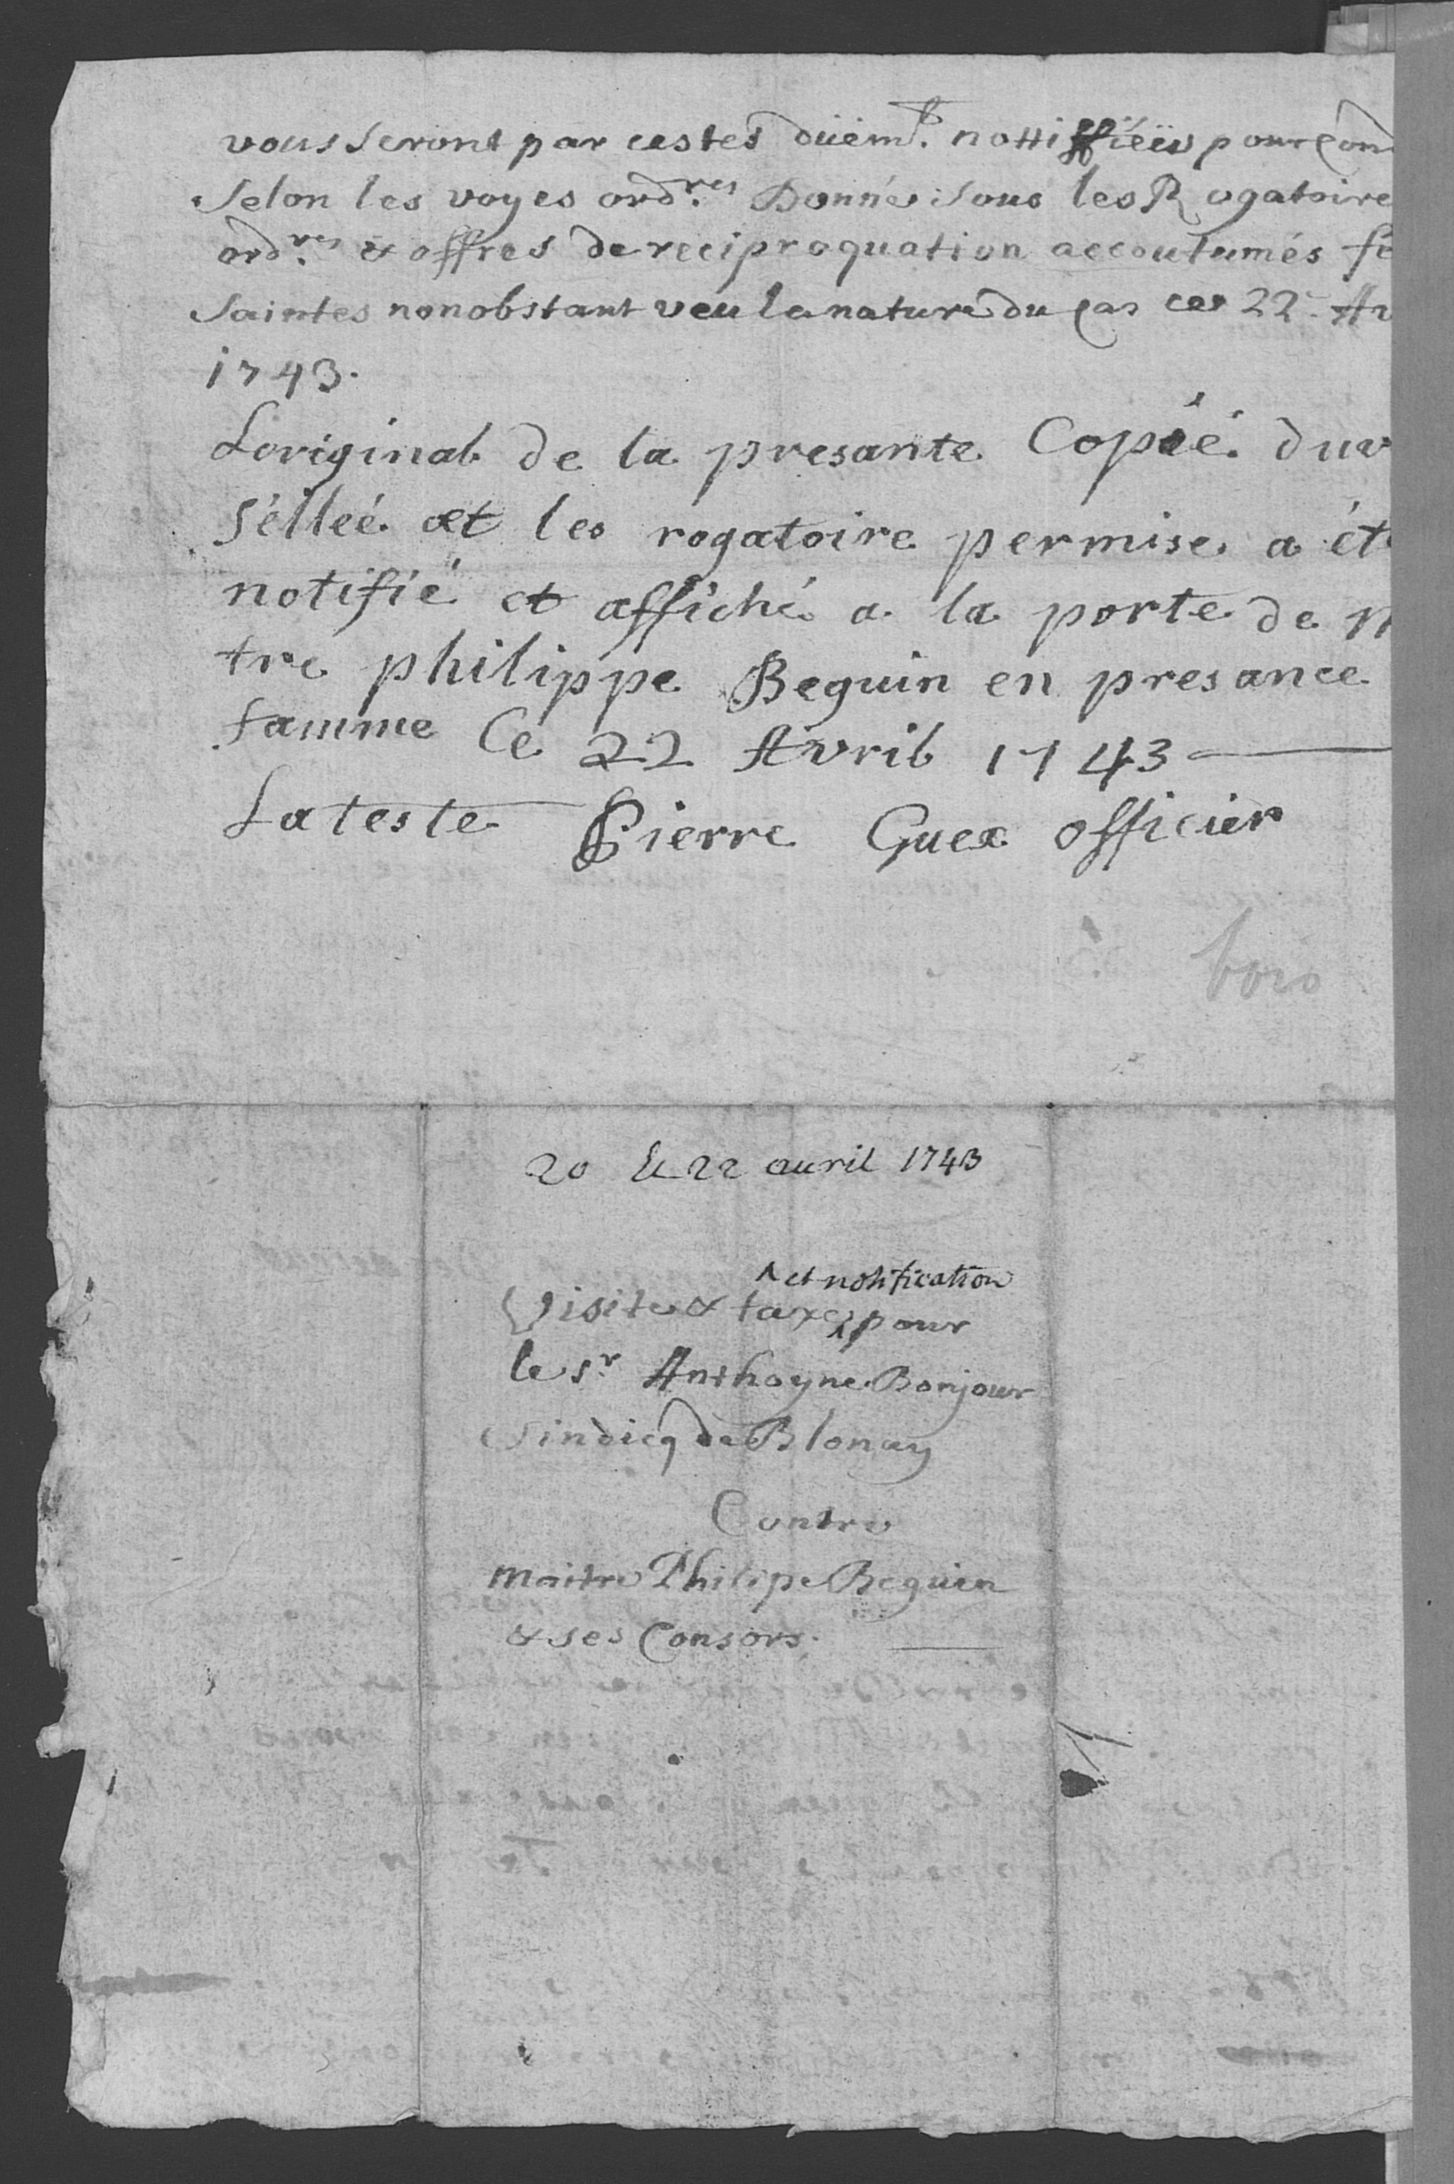 vous seront par cestes düem.t nottiffiéës pour con
Selon les voyes ord.res Donné sous les Rogatoire
ord.res & offres de reciproquation accoutumés fe
Saintes nonobstant veu la nature du cas ces 22.e Av
1743.
Loriginal de la presante Copié. duv
séllée et les rogatoire permise a ét
notifié et affiché a la porte de m
tre philippe Beguin en presance
famme Ce 22 Avril 1743
Lateste Pierre Guex officier
bois
20 & 22 auril 1743
et notification
Visite & taxe pour
le s.r Anthoyne Bonjour
Sindicq de Blonay
Contre
maitre Philipe Beguin
& ses Consors.